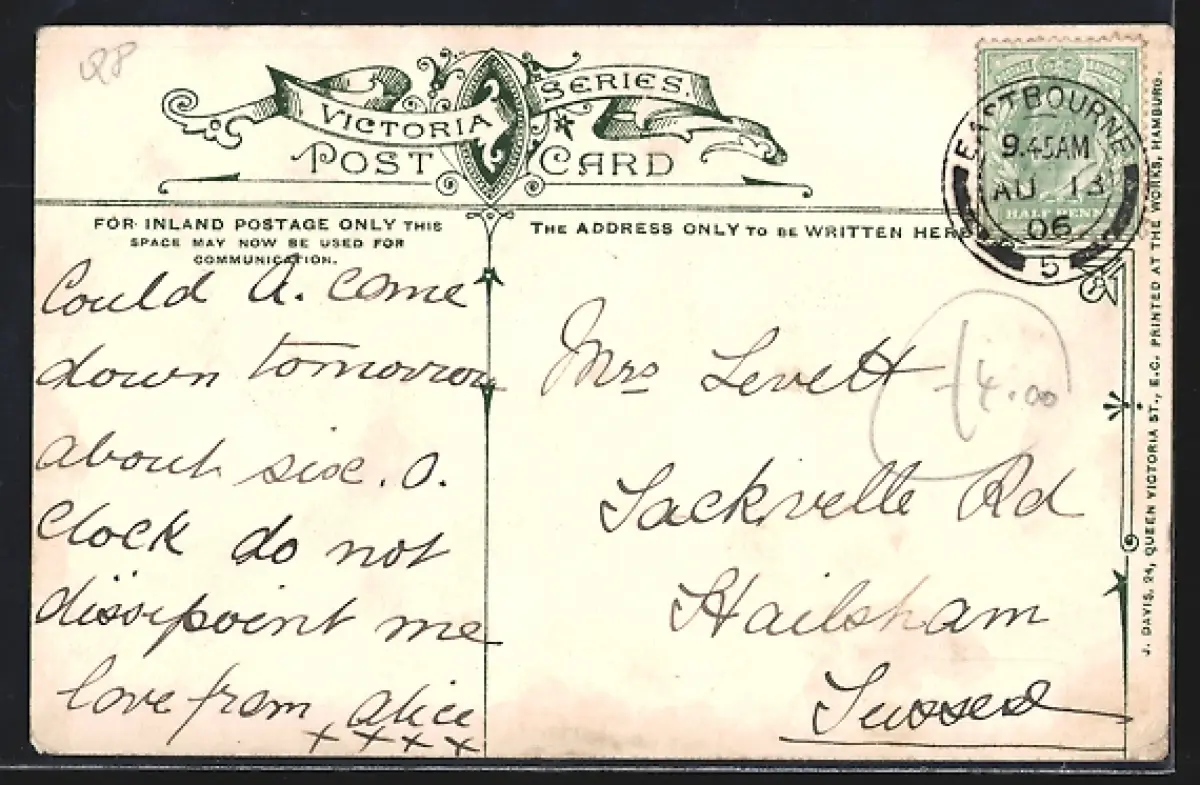 Q8
VICTORIA SERIES.
POST CARD
FOR INLAND POSTAGE ONLY THIS
SPACE MAY NOW BE USED FOR
COMMUNICATION.
THE ADDRESS ONLY TO BE WRITTEN HERE
EASTBOURNE
9.45AM
AU 13
06
5
HALF PENNY
Could A. come
down tomorrow
about six. O.
Clock do not
dissipoint me
love from Alice
x x x x
Mrs Levett
Sackville Rd
Hailsham
Sussex
14.00
J. DAVIS, 24, QUEEN VICTORIA ST., E.C. PRINTED AT THE WORKS, HAMBURG.